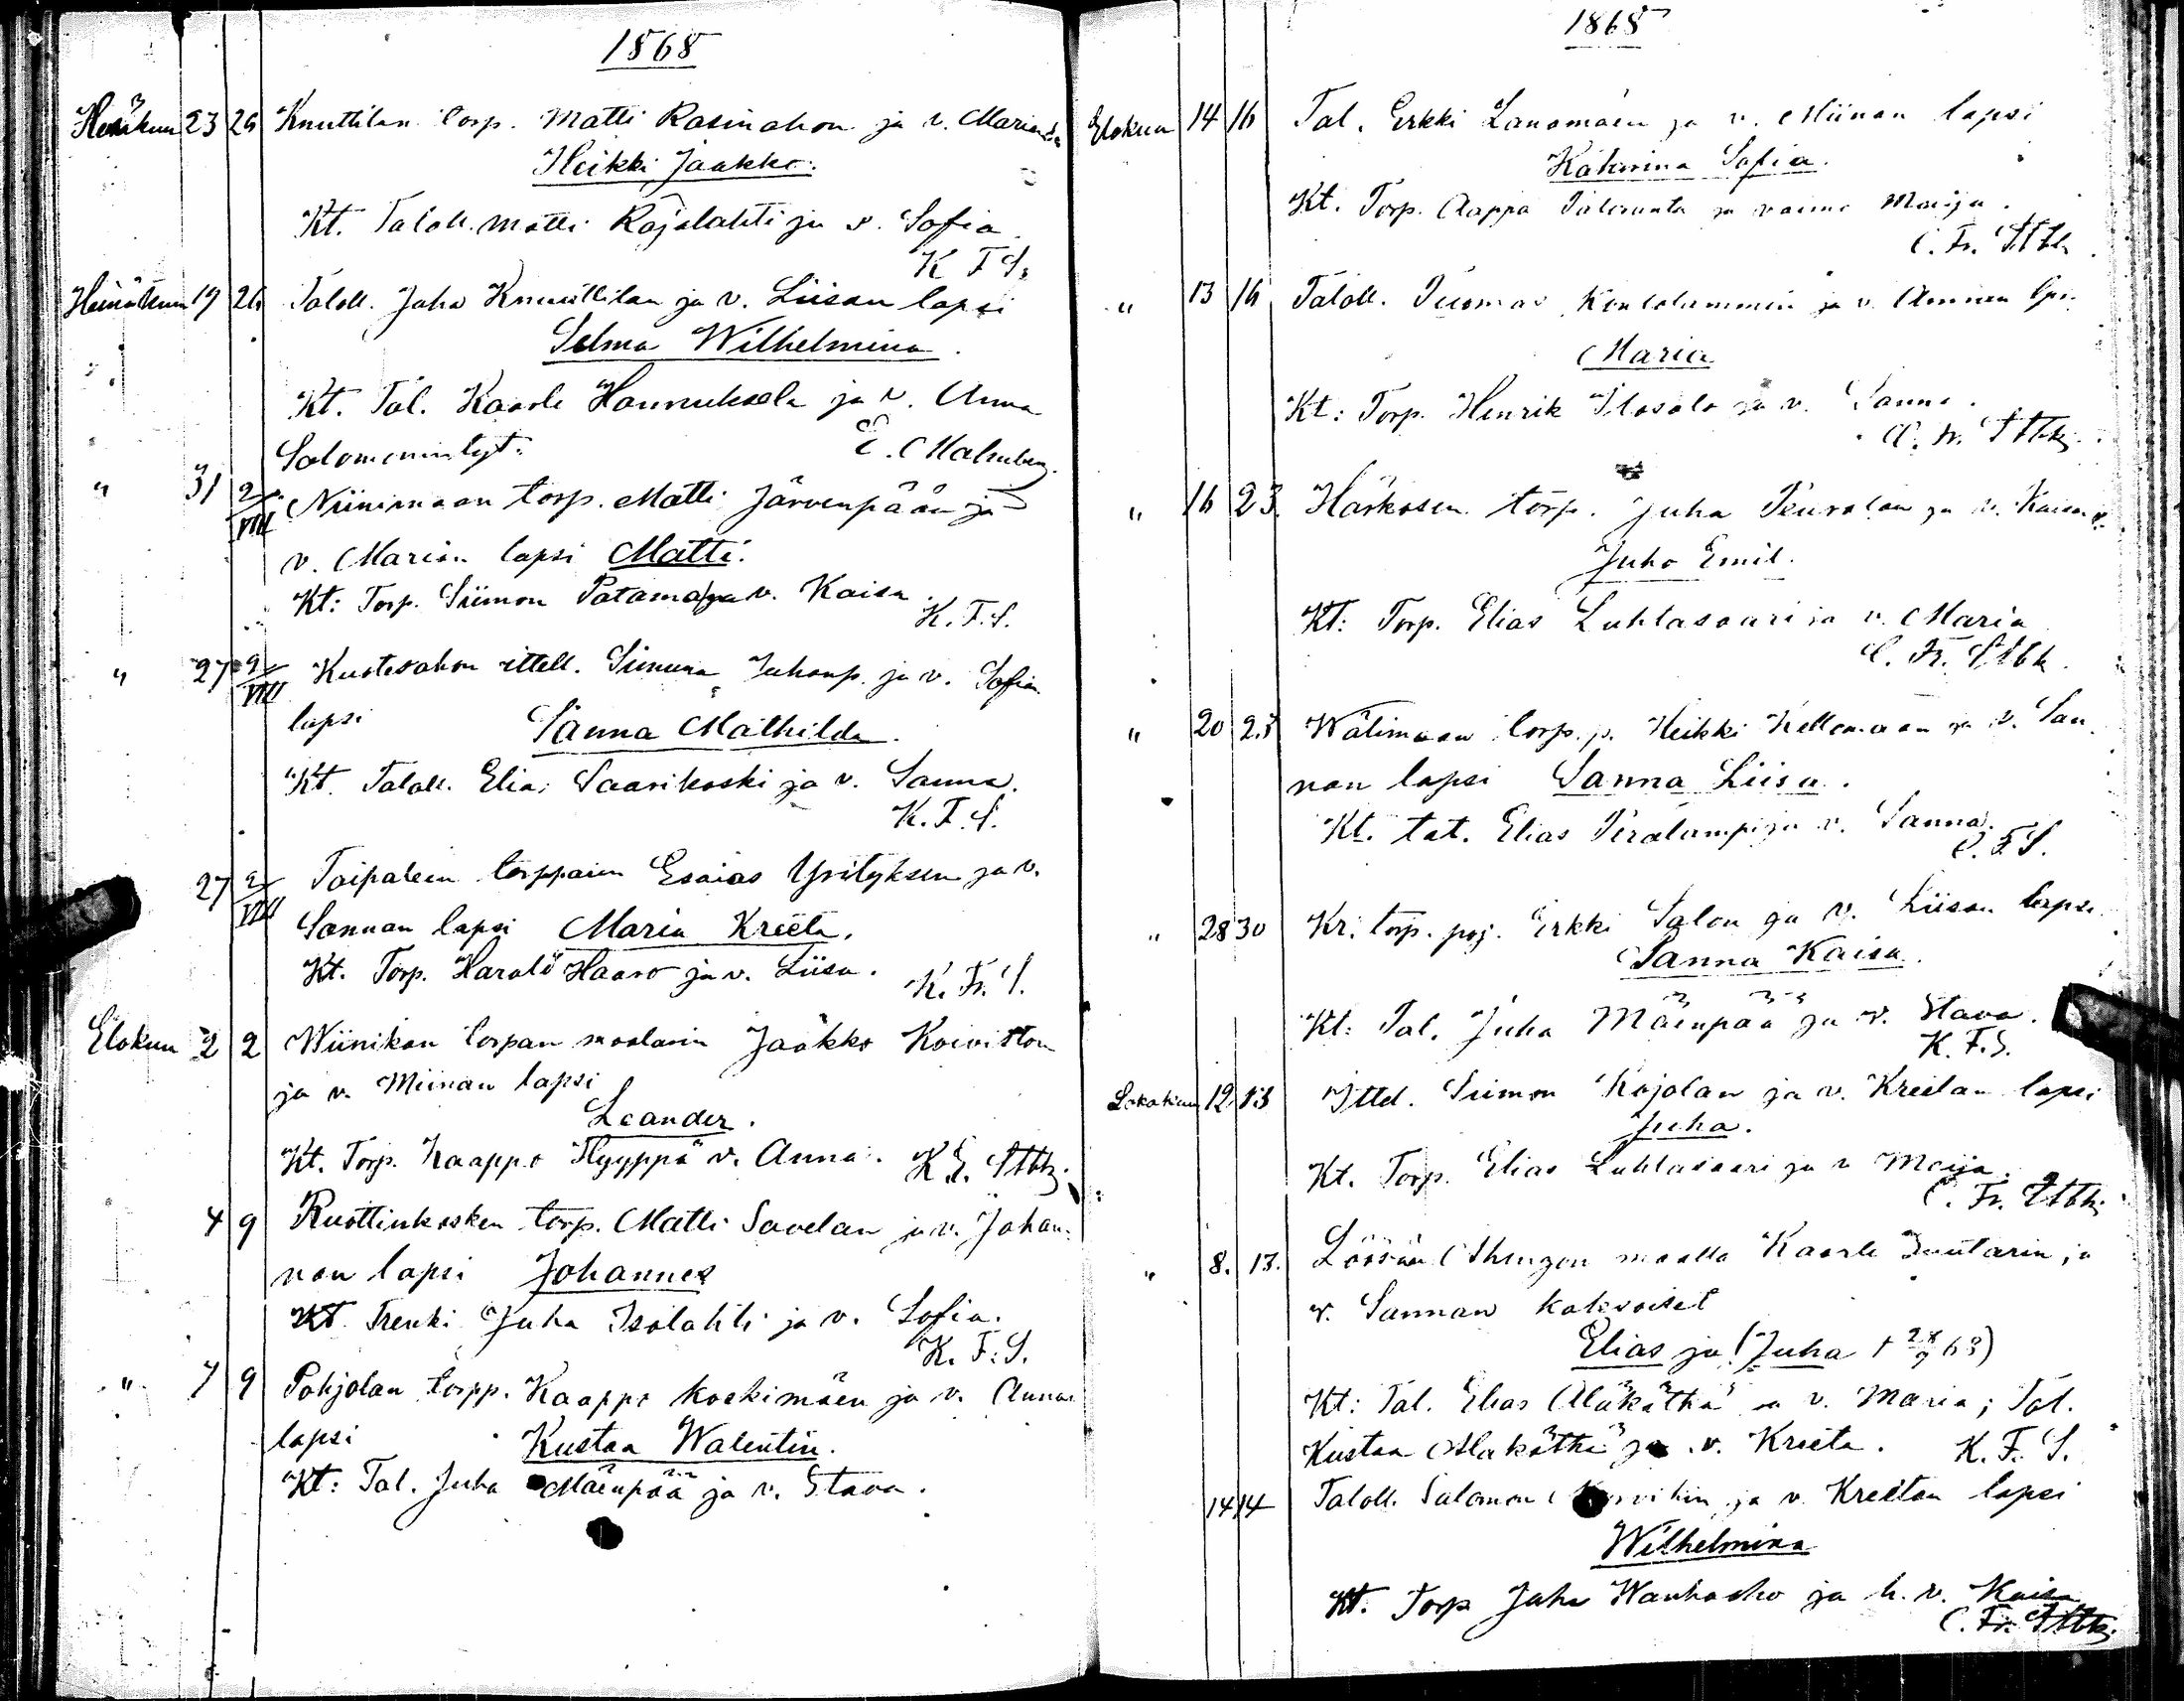 1868
Heinäkuun 23 26 Knuttilan torp. Matti Rasinahon ja v. Marian
Heikki Jaakko.
Kt. Taloll. Matti Rajalahti ja v. Sofia.
K F S.
Heinäkuun 19 26 Taloll. Juho Knuuttilan ja v. Liisan lapsi
Selma Wilhelmina.
Kt. Tal. Kaarle Hannuksela ja v. Anna
Salomonintyt. E. Malmberg.
" 31 2/VIII Niinimaan torp. Matti Järvenpään ja
v. Marian lapsi Matti.
Kt: Torp. Siimon ja v. Kaisa.
K. F. S.
" 27 9/VIII ittell. Simuna Juhonp. ja v. Sofian
lapsi Sanna Mathilda.
Kt. Taloll. Elia Saarikoski ja v. Sanna.
K. F. S.
27 2/VIII Taipaleen torpparin Esaias Yrityksen ja v.
Sannan lapsi Maria Kreeta.
Kt. Torp. Harald Haaro ja v. Liisa.
K. Fr. S.
Elokuu 2 2 Wiinikan torpan maalarin Jaakko Koiviston
ja v. Miinan lapsi
Leander.
Kt. Torp. Kaappo Hyyppä v. Anna. K F. Stbk.
4 9 Ruottinkosken torp. Matti Savelan ja v. Johan-
nan lapsi Johannes
Kt. Trenki Juha Isolahti ja v. Sofia.
K. F. S.
" 7 9 Pohjolan torpp. Kaappo Koskimäen ja v. Annan
lapsi Kustaa Walentin.
Kt: Tal. Juha Mäenpää ja v. Stava.
1868
Elokuu 14 16 Tal. Erkki Lanamäen ja v. Miinan lapsi
Katarina Sofia.
Kt. Torp. Aappa Paloranta ja vaimo Maija.
C. Fr. Stbk.
" 13 16 Taloll. Tuomas Kontolammin ja v. Annan lpsi.
Maria
Kt: Torp. Henrik Ilosalo ja v. Sanna.
C. Fr. Stbk.
" 16 23. Härkösen torp. Juha Peuralan ja v. Kaisan
Juho Emil.
Kt: Torp. Elias Luhtasaari ja v. Maria
C. Fr. Stbk.
" 20 23 Wälimaan torp. p. Heikki Kellomaan ja v. San-
nan lapsi Sanna Liisa.
Kt. tal. Elias Peralampi ja v. Sanna.
C. F S.
" 28 30 Kr. torp. poj. Erkki Salon ja v. Liisan lapsi
Sanna Kaisa.
Kt: Tal. Juha Mäenpää ja v. Stava.
K. F. S.
Lokakuun 12 13 Ittel. Siimon Kojolan ja v. Kreetan lapsi
Juha.
Kt. Torp. Elias Luhtasaari ja v Maija.
C. Fr. Stbk.
" 8. 13. maalla Kaarle Suutarin ja
v. Sannan kaksoiset
Elias ja (Juha † 28/9 68)
Kt: Tal. Elias Alakätkä ja v. Maria; Tal.
Kustaa Alakätkä ja v. Kreeta. K. F. S.
14 14 Taloll. Salomon ja v. Kreetan lapsi
Wilhelmina
Kt. Torp Juha Wanhaaho ja h. v. Kaisa
C. Fr. Stbk.